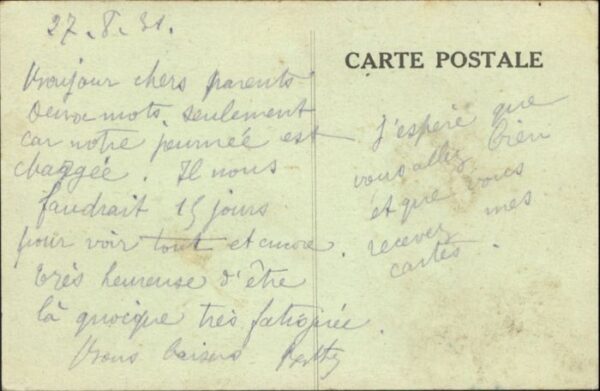 27.8.31.
CARTE POSTALE
Bonjour chers parents
Deux mots seulement
car notre journée est
chargée. Il nous
faudrait 15 jours
pour voir tout et encore.
très heureuse d'être
là quoique très fatiguée.
Bons baisers
J'espère que
vous allez bien
et que vous
recevez mes
cartes.